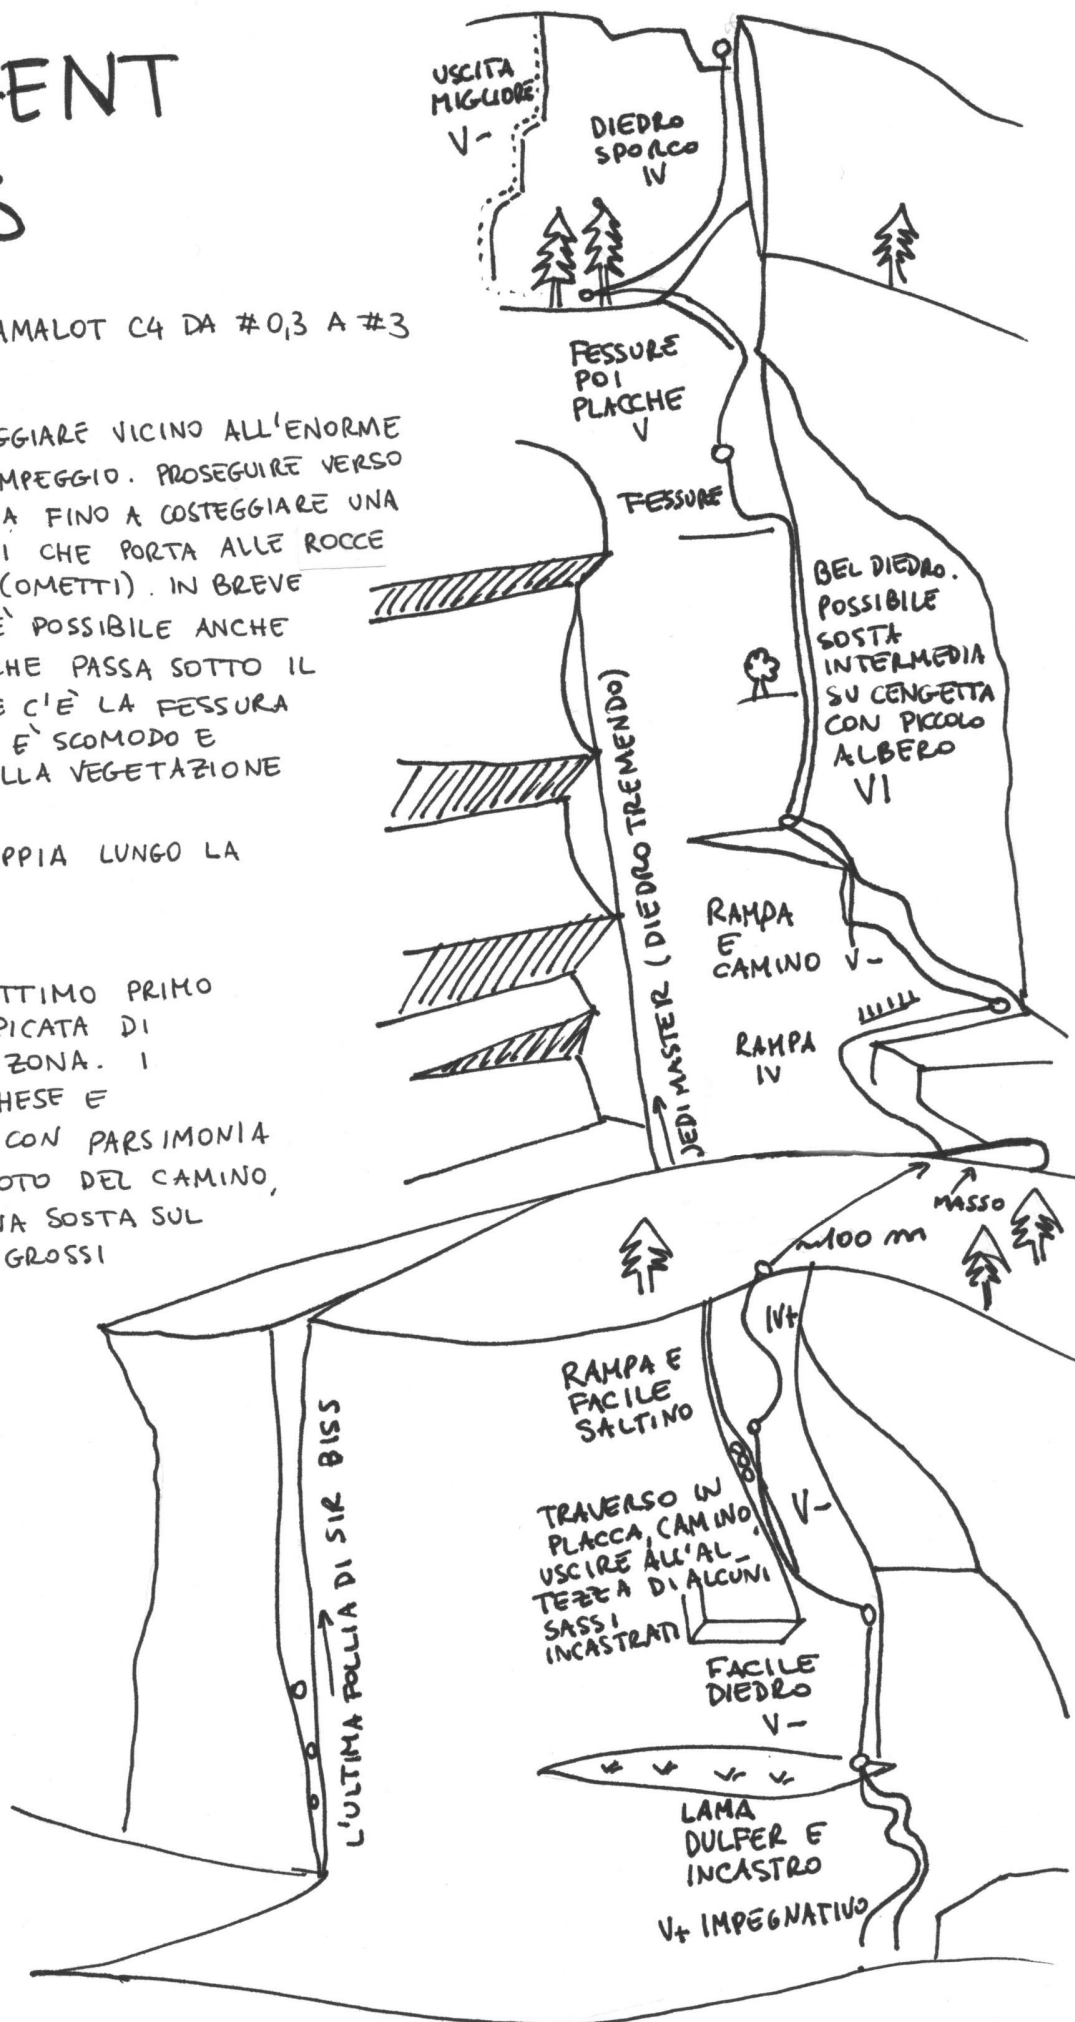 ENT
S
AMALOT C4 DA #0,3 A #3
GGIARE VICINO ALL'ENORME
MPEGGIO. PROSEGUIRE VERSO
A FINO A COSTEGGIARE UNA
I CHE PORTA ALLE ROCCE
(OMETTI). IN BREVE
È POSSIBILE ANCHE
CHE PASSA SOTTO IL
E C'È LA FESSURA
E' SCOMODO E
LLA VEGETAZIONE
PPIA LUNGO LA
TTIMO PRIMO
PICATA DI
ZONA. I
HESE E
CON PARSIMONIA
OTO DEL CAMINO,
NA SOSTA SUL
GROSSI
USCITA
MIGLIORE
V-
DIEDRO
SPORCO
IV
FESSURE
POI
PLACCHE
V
FESSURE
BEL DIEDRO.
POSSIBILE
SOSTA
INTERMEDIA
SU CENGETTA
CON PICCOLO
ALBERO
VI
JEDI MASTER (DIEDRO TREMENDO)
RAMPA
E
CAMINO V-
RAMPA
IV
MASSO
~100 m
IV+
RAMPA E
FACILE
SALTINO
TRAVERSO IN
PLACCA, CAMINO,
USCIRE ALL'AL_
TEZZA DI ALCUNI
SASSI
INCASTRATI
V-
FACILE
DIEDRO
V-
L'ULTIMA FOLLIA DI SIR BISS
LAMA
DULFER E
INCASTRO
V+ IMPEGNATIVO